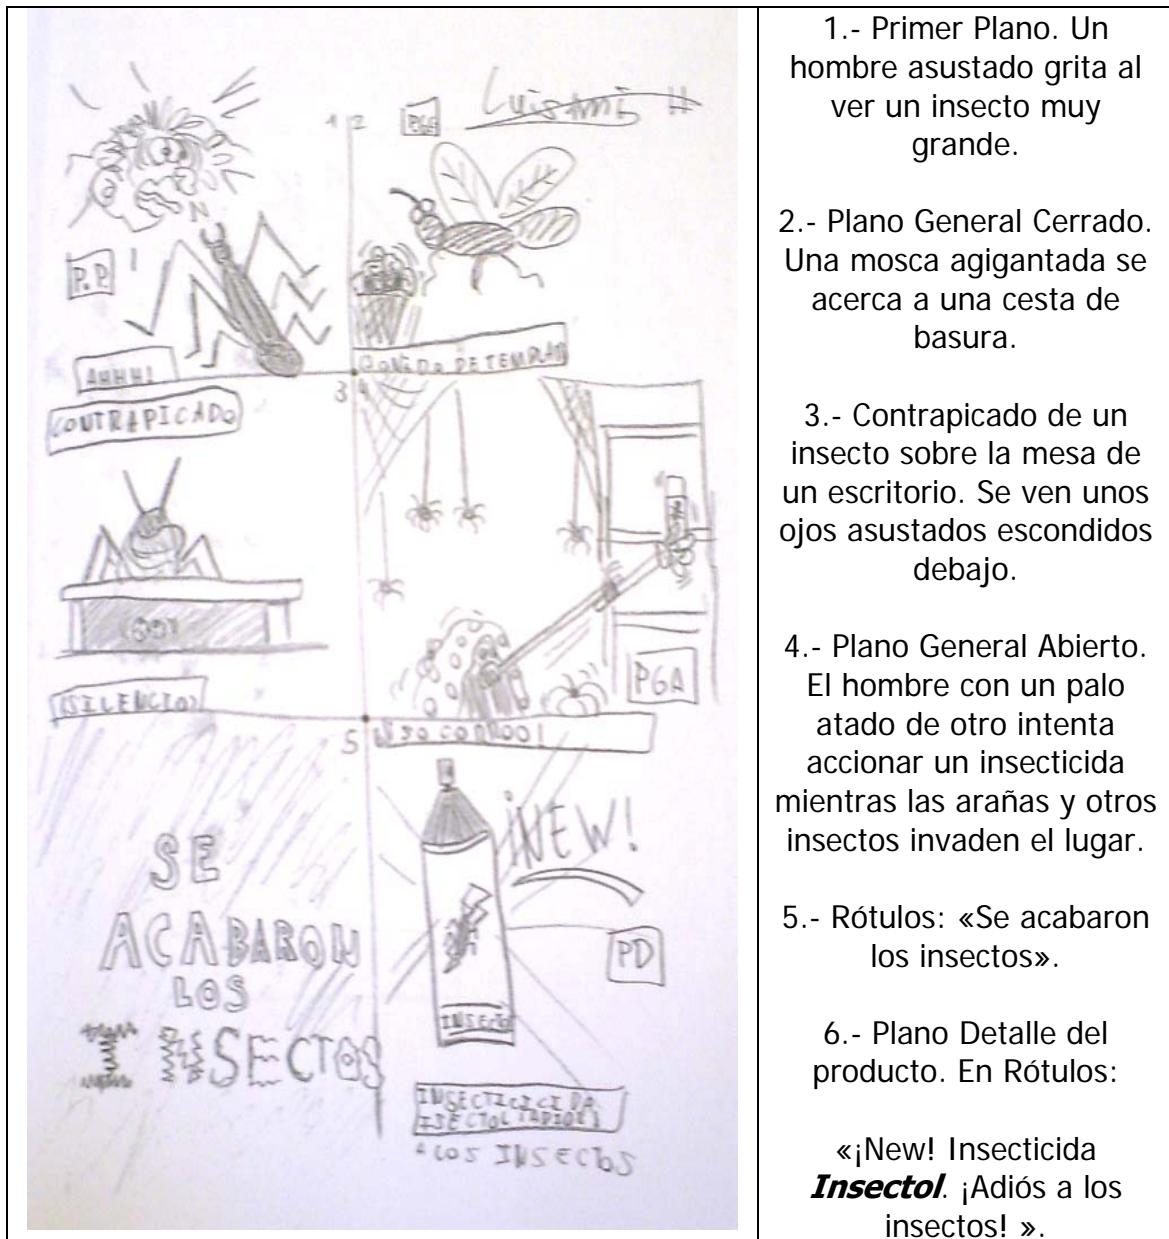 1 2
PGC
Luismi H
P.P
AHHH!
3 4
CONTRAPICADO
(SILENCIO)
PGA
5
SE
ACABARON
LOS
INSECTOS
¡NEW!
PD
INSECTOL
A LOS INSECTOS
1.- Primer Plano. Un
hombre asustado grita al
ver un insecto muy
grande.
2.- Plano General Cerrado.
Una mosca agigantada se
acerca a una cesta de
basura.
3.- Contrapicado de un
insecto sobre la mesa de
un escritorio. Se ven unos
ojos asustados escondidos
debajo.
4.- Plano General Abierto.
El hombre con un palo
atado de otro intenta
accionar un insecticida
mientras las arañas y otros
insectos invaden el lugar.
5.- Rótulos: «Se acabaron
los insectos».
6.- Plano Detalle del
producto. En Rótulos:
«¡New! Insecticida
Insectol. ¡Adiós a los
insectos! ».